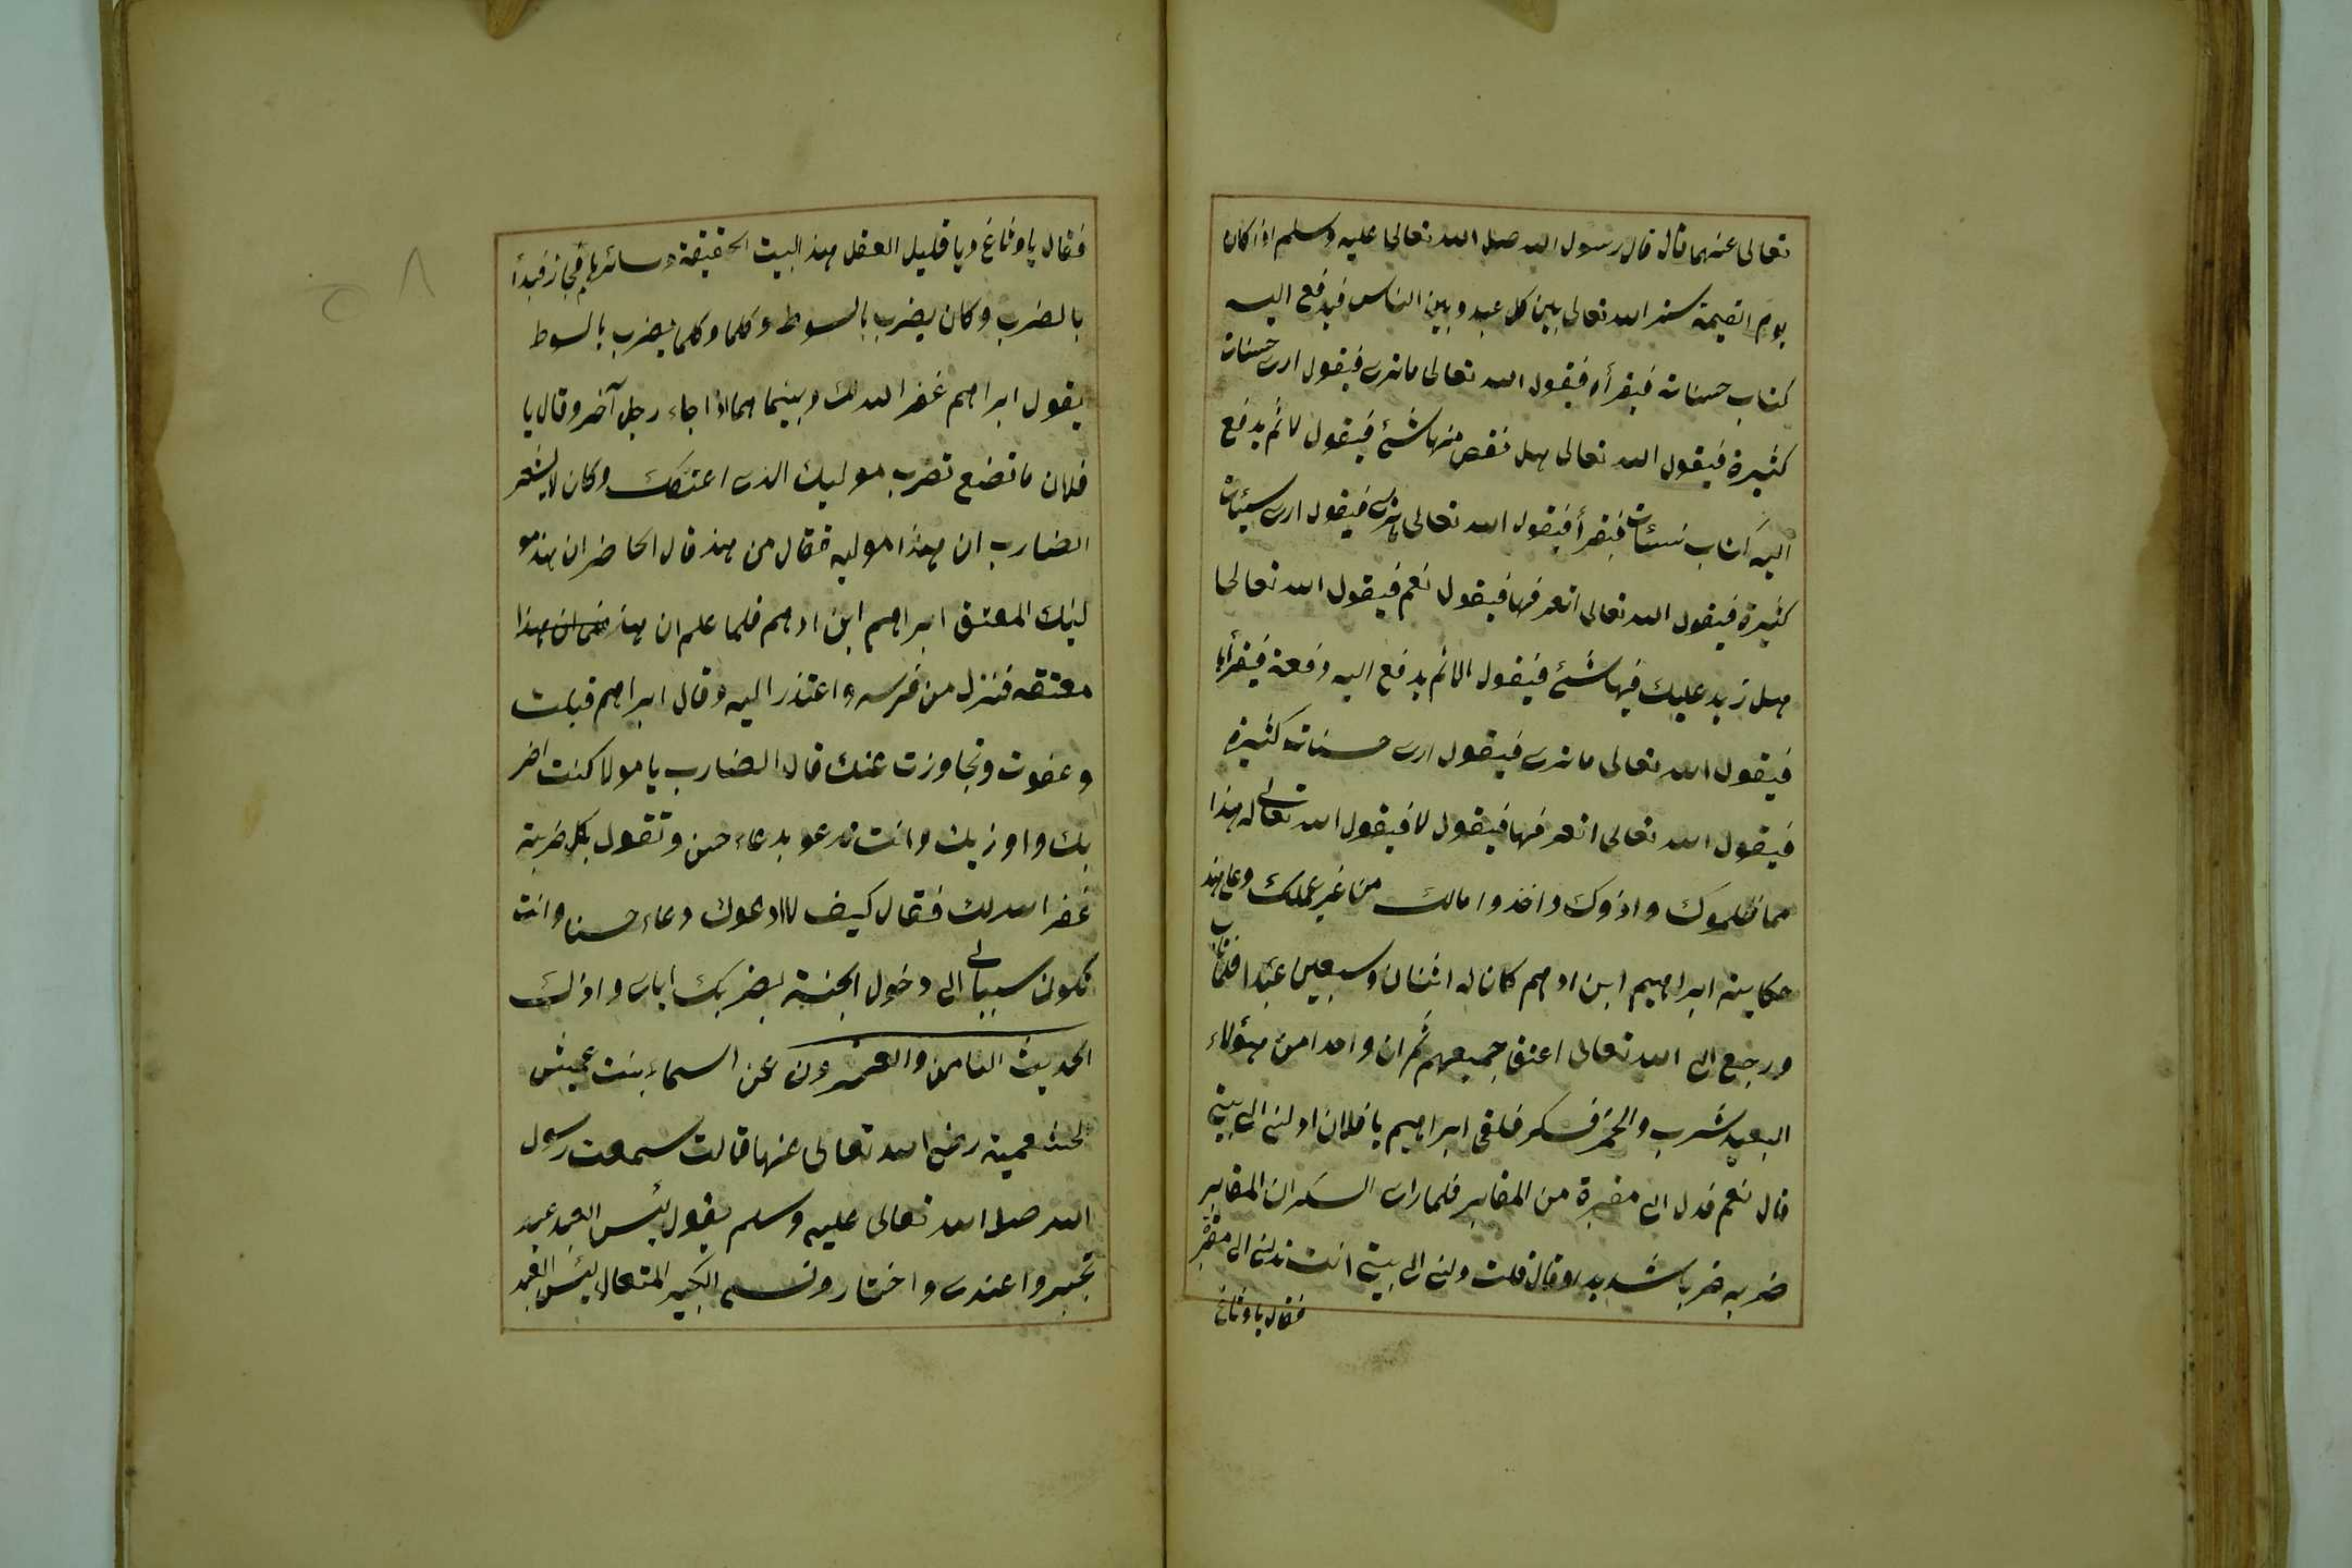 تعالى عنهما قال قال رسول الله صلى الله تعالى عليه وسلم اذا كان
يوم القيمة ستر الله تعالى بين كل عبد وبين الناس فيدفع اليه
كتاب حسناته فيقرأه فيقول الله تعالى ما ترى فيقول ارى حسنات
كثيرة فيقول الله تعالى هل نقص منها شئ فيقول لا ثم يدفع
اليه كتاب سيئات فيقرأ فيقول الله تعالى ما ترى فيقول ارى سيئات
كثيرة فيقول الله تعالى اتعرفها فيقول نعم فيقول الله تعالى
هل زيد عليك فيها شئ فيقول لا ثم يدفع اليه رقعة فيقرأها
فيقول الله تعالى ما ترى فيقول ارى حسنات كثيرة
فيقول الله تعالى اتعرفها فيقول لا فيقول الله تعالى له هذا
مما ظلموك واذوك واخذوا مالك من غير عملك وعلى هذ
حكاية ابراهيم ابن ادهم كان له اثنان وسبعين عبدا فلما تاب
ورجع الى الله تعالى اعتق جميعهم ثم ان واحدا من هؤلاء
العبيد شرب والخمر فسكر فلقى ابراهيم يا فلان ادلنى الى بيتى
قال نعم فدل الى مقبرة من المقابر فلما راى السكران المقابر
ضربه ضربا شديدا وقال قلت دلنى الى بيتى انت تدلنى الى مقبر
فقال ياوثاغ
فقال ياوثاغ ويا قليل العقل هذ البيت الحقيقة وسائرها مجاز فبدأ
بالضرب وكان يضرب بالسوط وكلما وكلما يضرب بالسوط
يقول ابراهيم غفر الله لك وبينما هما اذا جاء رجل آخر وقال يا
فلان ما تضع تضرب موليك الذى اعتقك وكان لا يشعر
الضارب ان هذا موليه فقال من هذ قال الحاضران هذ مو
ليك المعتق ابراهيم ابن ادهم فلما علم ان هذ
معتقه فنزل من فرسه واعتذر اليه وقال ابراهيم قبلت
وعفوت وتجاوزت عنك قال الضارب يا مولا كنت اضر
بك واوزيك وانت تدعو بدعاء حسن وتقول بكل ضربة
غفر الله لك فقال كيف لا ادعوك دعاء حسنا وانت
تكون سببا لى الى دخول الجنة بضربك اياى واذالك
الحديث الثامن والعشرون عن اسماء بنت عميش
الخثعمية رضى الله تعالى عنها قالت سمعت رسول
الله صلى الله تعالى عليه وسلم يقول بئس العبد عبد
تجبر واعتدى واختار ونسى الكبير المتعال بئس العبد